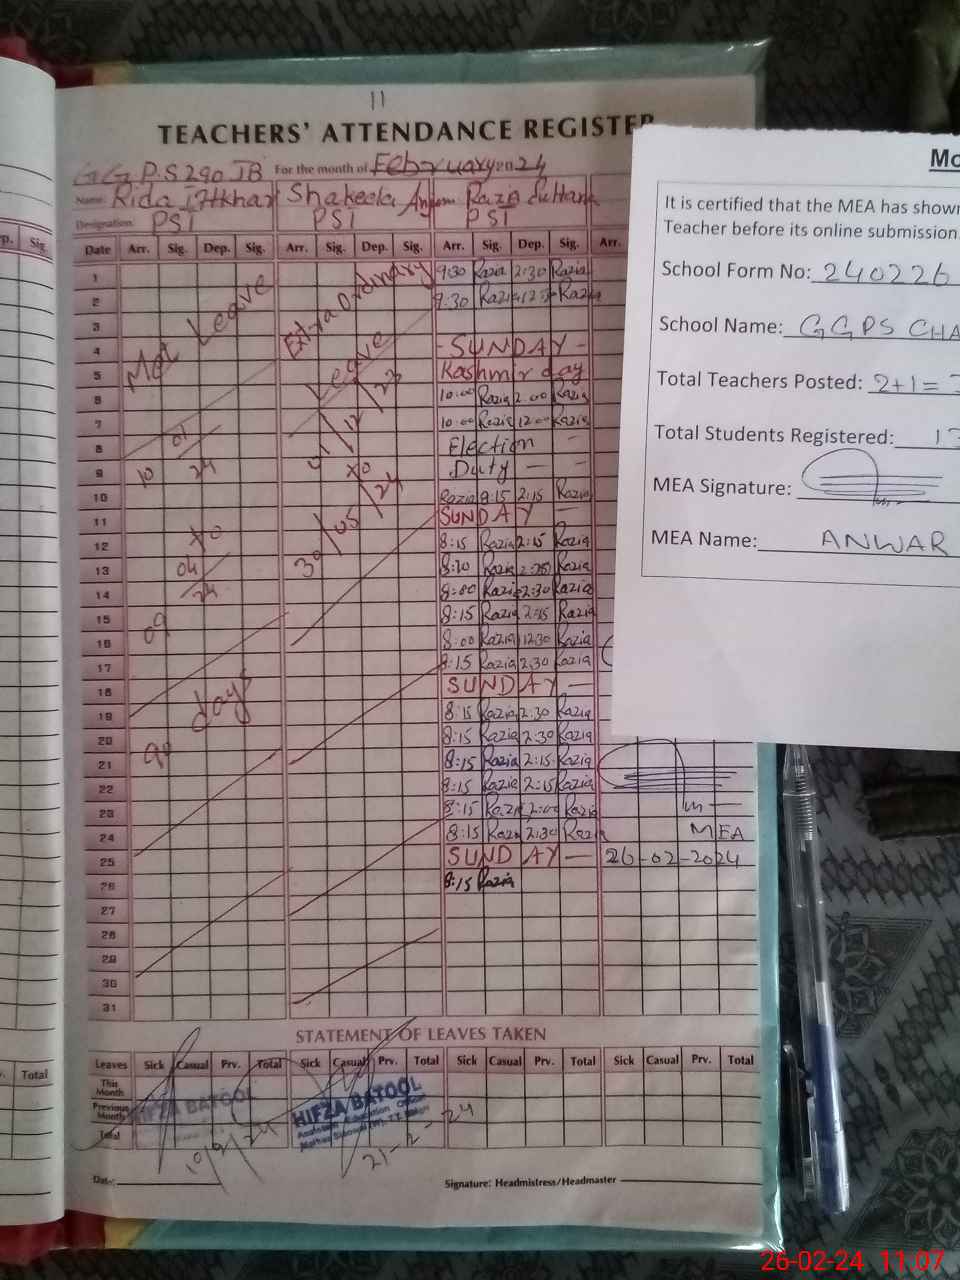 11
TEACHERS' ATTENDANCE REGISTER
G G P.S 290 JB For the month of February 2024
Name: Rida Iftkhar Shakeela Anjum Razia Sultana
Designation: PST PST PST
Date Arr. Sig. Dep. Sig. Arr. Sig. Dep. Sig. Arr. Sig. Dep. Sig. Arr.
1 9:30 Razia 2:30 Razia
2 9:30 Razia 12:30 Razia
3
4 - SUNDAY -
5 Kashmir day
6 10:00 Razia 2:00 Razia
7 10:00 Razia 12:00 Razia
8 Election -
9 Duty - -
10 Razia 9:15 2:15 Razia
11 SUNDAY -
12 8:15 Razia 2:15 Razia
13 8:30 Razia Razia
14 8:00 Razia 2:30 Razia
15 8:15 Razia 2:15 Razia
16 8:00 Razia 12:30 Razia
17 8:15 Razia 2:30 Razia
18 SUNDAY -
19 8:15 Razia 2:30 Razia
20 8:15 Razia 2:30 Razia
21 8:15 Razia 2:15 Razia
22 8:15 Razia 2:15 Razia
23 8:15 Razia 2:00 Razia
24 8:15 Razia 2:30 Razia MEA
25 SUNDAY - 26-02-2024
26 8:15 Razia
27
28
29
30
31
Mat Leave
10 01 24
to
09 04 24
90 days
Extra Ordinary
Leave
12/23
to
30/05/24
STATEMENT OF LEAVES TAKEN
Leaves Sick Casual Prv. Total Sick Casual Prv. Total Sick Casual Prv. Total Sick Casual Prv. Total
This Month
Previous Month
Total
HIFZA BATOOL
HIFZA BATOOL
Assistant Education Officer
21-2-24
Date:
Signature: Headmistress/Headmaster
p. Sig.
Total
Mo
It is certified that the MEA has shown
Teacher before its online submission.
School Form No: 240226
School Name: GGPS CHA
Total Teachers Posted: 2+1=3
Total Students Registered: 13
MEA Signature:
MEA Name: ANWAR
26-02-24 11:07